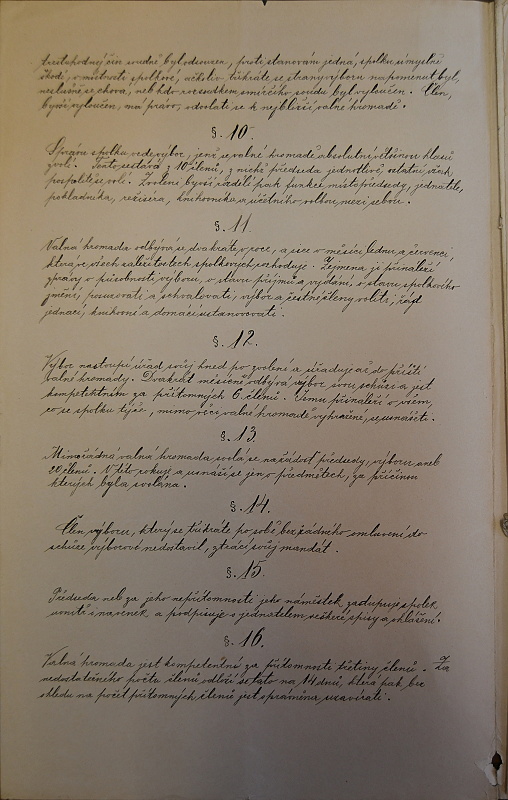 trestuhodný čin soudně byl odsouzen, proti stanovám jedná, spolku úmyslně
škodí, v místnosti spolkové, ačkoliv třikráte se strany výboru napomenut byl,
neslušně se chová, neb kdo rozsudkem smírčího soudu byl vyloučen. Člen,
byv vyloučen, má právo, odvolati se k nejbližší valné hromadě.
§. 10.
Správu spolku vede výbor, jenž se valné hromadě absolutní většinou hlasů
volí. Tento sestává z 10 členů, z nichž předseda jednotlivě, ostatní však
pospolitě se volí. Zvolení byvší rozdělí pak funkce místopředsedy, jednatele,
pokladníka, režiséra, knihovníka a účetního volbou mezi sebou.
§. 11.
Valná hromada odbývá se dvakráte v roce, a sice v měsíci lednu a červenci,
která ve všech záležitostech spolkových rozhoduje. Zejmena jí přináleží
zprávy o působnosti výboru, o stavu příjmů a vydání, o stavu spolkového
jmění, posuzovati a schvalovati, výbor a čestné členy voliti, řád
jednací, knihovní a domácí ustanovovati.
§. 12.
Výbor nastoupí úřad svůj hned po zvolení a úřaduje až do příští
valné hromady. Dvakrát měsíčně odbývá výbor svou schůzi a jest
kompetentním za přítomnosti 6 členů. Jemu přináleží o všem,
co se spolku týče, mimo věcí valné hromadě vyhražené, se usnášeti.
§. 13.
Mimořádná valná hromada svolá se na žádost předsedy, výboru aneb
20 členů. V této rokuje a usnáší se jen o předmětech, za příčinou
kterých byla svolána.
§. 14.
Člen výboru, který se třikráte po sobě bez řádného omluvení do
schůze výborové nedostavil, ztrácí svůj mandát.
§. 15.
Předseda neb za jeho nepřítomnosti jeho náměstek zastupuje spolek
uvnitř i navenek a podpisuje s jednatelem veškeré spisy a ohlášení.
§. 16.
Valná hromada jest kompetentní za přítomnosti třetiny členů. Za
nedostatečného počtu členů odloží se tato na 14 dnů, která pak bez
ohledu na počet přítomných členů jest oprávněna uzavírati.